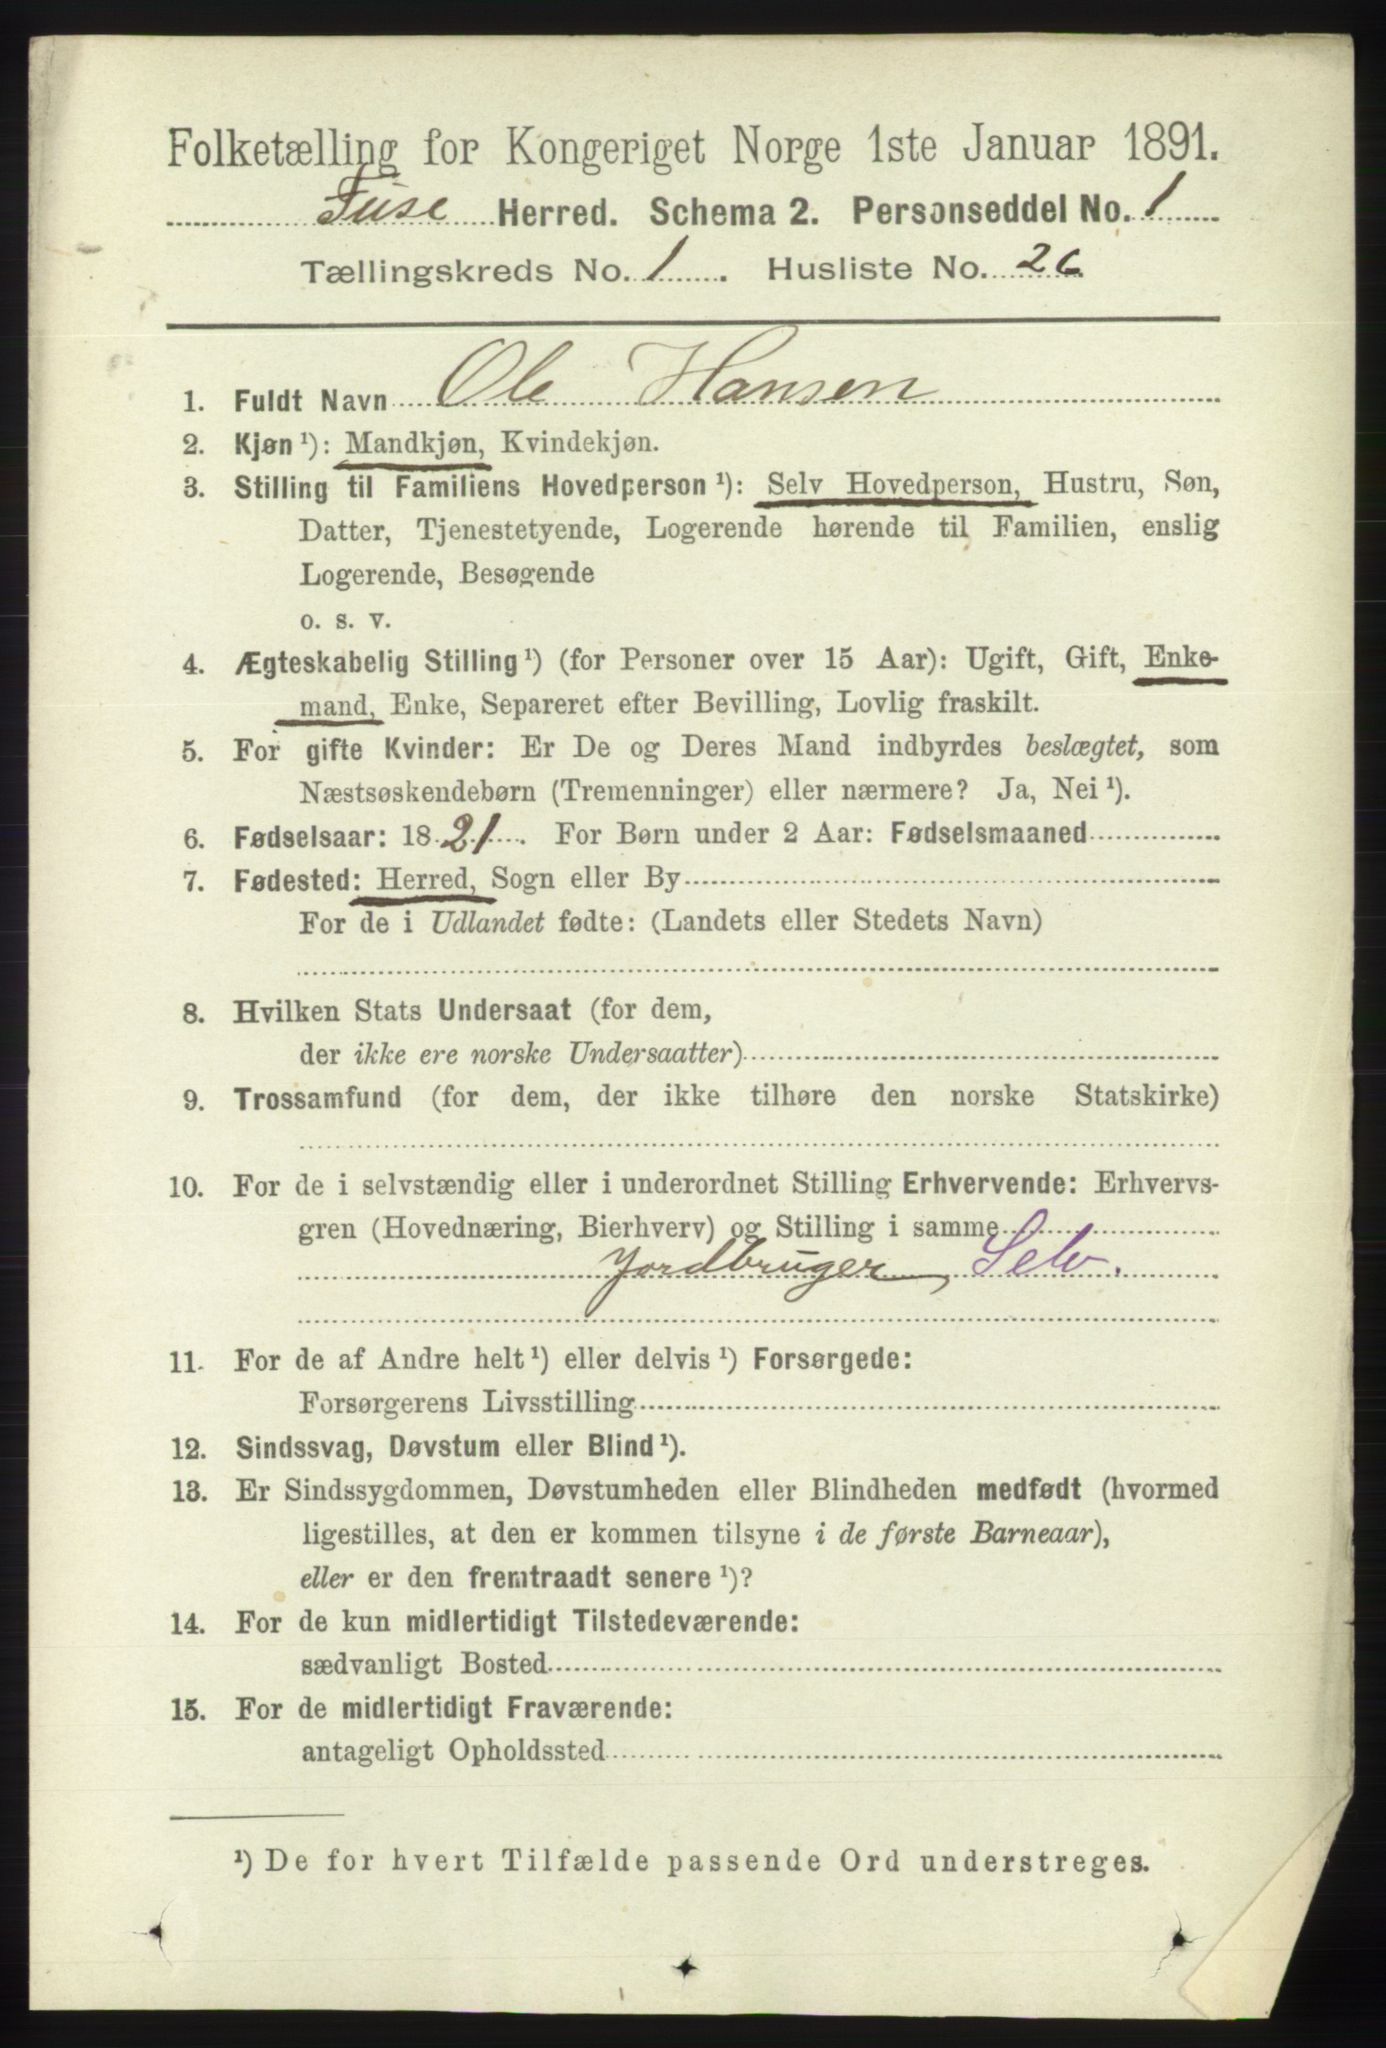 Folketælling for Kongeriget Norge 1ste Januar 1891.
Fuse Herred. Schema 2. Personseddel No. 1
Tællingskreds No. 1. Husliste No. 26
1. Fuldt Navn Ole Hansen
2. Kjøn ¹): Mandkjøn, Kvindekjøn.
3. Stilling til Familiens Hovedperson ¹): Selv Hovedperson, Hustru, Søn,
Datter, Tjenestetyende, Logerende hørende til Familien, enslig
Logerende, Besøgende
o. s. v.
4. Ægteskabelig Stilling ¹) (for Personer over 15 Aar): Ugift, Gift, Enke-
mand, Enke, Separeret efter Bevilling, Lovlig fraskilt.
5. For gifte Kvinder: Er De og Deres Mand indbyrdes beslægtet, som
Næstsøskendebørn (Tremenninger) eller nærmere? Ja, Nei ¹).
6. Fødselsaar: 1821. For Børn under 2 Aar: Fødselsmaaned
7. Fødested: Herred, Sogn eller By
For de i Udlandet fødte: (Landets eller Stedets Navn)
8. Hvilken Stats Undersaat (for dem,
der ikke ere norske Undersaatter)
9. Trossamfund (for dem, der ikke tilhøre den norske Statskirke)
10. For de i selvstændig eller i underordnet Stilling Erhvervende: Erhvervs-
gren (Hovednæring, Bierhverv) og Stilling i samme
Jordbruger, Selv.
11. For de af Andre helt ¹) eller delvis ¹) Forsørgede:
Forsørgerens Livsstilling
12. Sindssvag, Døvstum eller Blind ¹).
13. Er Sindssygdommen, Døvstumheden eller Blindheden medfødt (hvormed
ligestilles, at den er kommen tilsyne i de første Barneaar),
eller er den fremtraadt senere ¹)?
14. For de kun midlertidigt Tilstedeværende:
sædvanligt Bosted
15. For de midlertidigt Fraværende:
antageligt Opholdssted
¹) De for hvert Tilfælde passende Ord understreges.